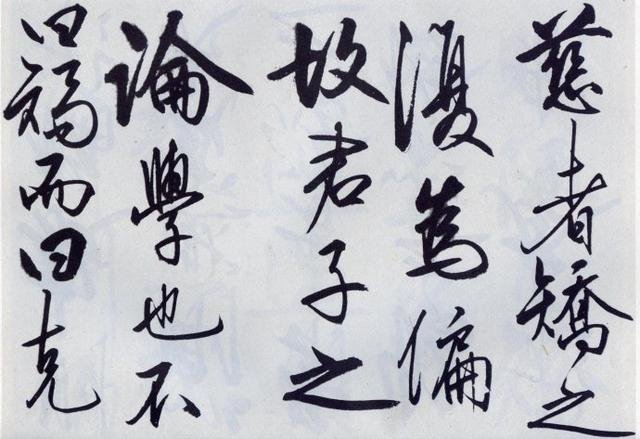 慈者矯之
復為偏
故君子之
論學也不
曰矯而曰克